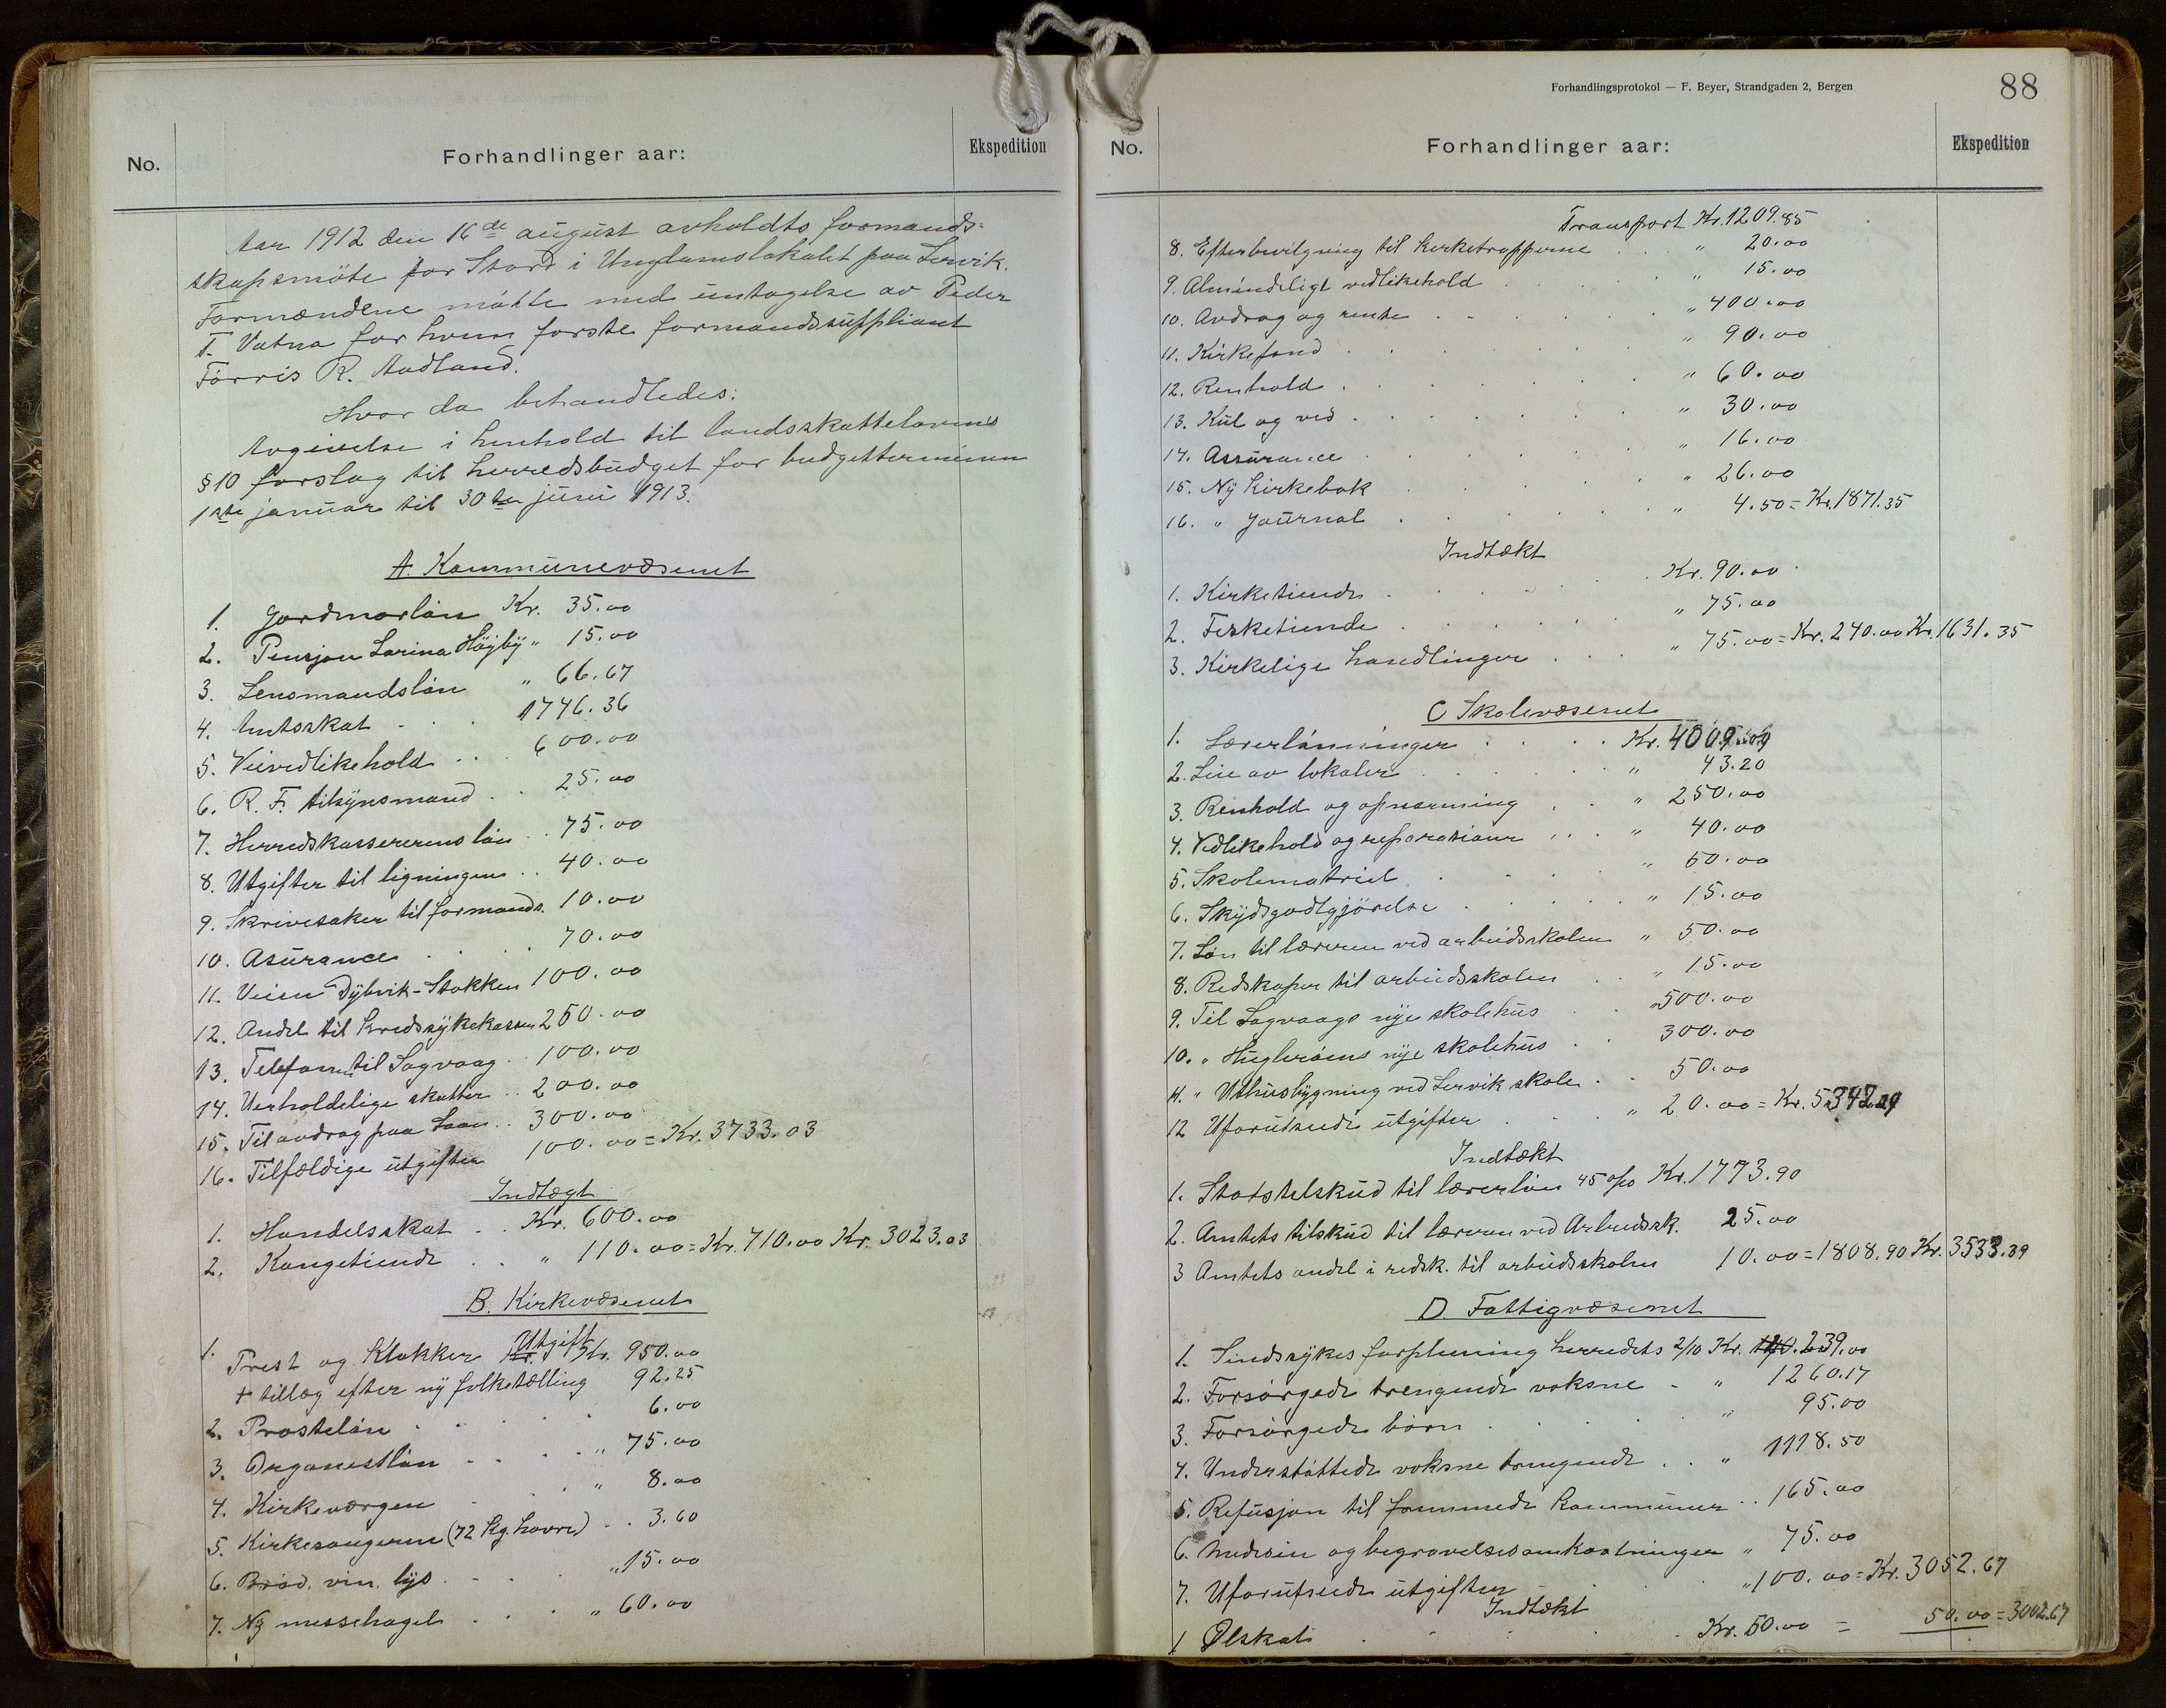 No.
Forhandlinger aar:
Ekspedition
Aar 1912 den 16de august avholdts formands-
skapsmöte for Stord i Ungdomslokalet paa Lervik.
Formændene mötte med untagelse av Peder
T. Vatna for hvem förste formandssuppliant
Törris R. Aadland.
Hvor da behandledes:
Avgivelse i henhold til landsskattelovens
§ 10 forslag til herredsbudget for budgetterminen
1ste januar til 30te juni 1913.
A. Kommunevæsenet
1. Jordmorlön Kr. 35.00
2. Pensjon Larina Högby " 15.00
3. Lensmandslön " 66.67
4. Amtsskat . . . 1746.36
5. Veivedlikehold . . . 600.00
6. R. F. tilsynsmand . . 25.00
7. Herredskassererens lön . . 75.00
8. Utgifter til ligningen . . 40.00
9. Skrivesaker til formands. 10.00
10. Asurance . . . 70.00
11. Veien Dybvik-Stokken 100.00
12. Andel til Kredssykekassen 250.00
13. Telefonen til Sagvaag . . 100.00
14. Uerholdelige skatter . . 200.00
15. Til avdrag paa Laan . . 300.00
16. Tilfældige utgifter 100.00 = Kr. 3733.03
Indtægt
1. Handelsskat . . Kr. 600.00
2. Kongetiende . . " 110.00 = Kr. 710.00 Kr. 3023.03
B. Kirkevæsenet
Utgift
1. Prest og Klokker Kr. Kr. 950.00
+ tillæg efter ny folketælling 92.25
2. Prostelön . . . . 6.00
3. Organestlön . . . . " 75.00
4. Kirkeværgen . . . " 8.00
5. Kirkesangeren (72 Kg. havre) . . 3.60
6. Bröd, vin, lys . . . . " 15.00
7. Ny messehagel . . . " 60.00
Forhandlingsprotokol — F. Beyer, Strandgaden 2, Bergen
88
No.
Forhandlinger aar:
Ekspedition
Transport Kr. 1209.85
8. Efterbevilgning til kirketrapperne . . " 20.00
9. Almindeligt vedlikehold . . . " 15.00
10. Avdrag og rente . . . . . " 400.00
11. Kirkefond . . . . . . " 90.00
12. Renhold . . . . . . " 60.00
13. Kul og ved . . . . . . " 30.00
14. Assurance . . . . . . " 16.00
15. Ny Kirkebok . . . . . " 26.00
16. " Journal . . . . . . " 4.50 = Kr. 1871.35
Indtækt
1. Kirketiende . . . . . Kr. 90.00
2. Fisketiende . . . . . " 75.00
3. Kirkelige handlinger . . . " 75.00 = Kr. 240.00 Kr. 1631.35
C Skolevæsenet
1. Lærerlönninger . . . . Kr. 4009.09
2. Leie av lokaler . . . . . " 43.20
3. Renhold og opvarming . . " 250.00
4. Vedlikehold og reparasioner . . . " 40.00
5. Skolematriel . . . . . " 50.00
6. Skydsgodtgjörelse . . . . . " 15.00
7. Lön til læreren ved arbeidsskolen " 50.00
8. Redskaper til arbeidsskolen . . " 15.00
9. Til Sagvaags nye skolehus . . " 500.00
10. " Huglenöens nye skolehus . . 300.00
11. " Uthusbygning ved Lervik skole . . 50.00
12 Uforutseede utgifter . . . " 20.00 = Kr. 5342.29
Indtækt
1. Statstilskud til lærerlön 45 o/o Kr. 1773.90
2. Amtets tilskud til læreren ved Arbeidssk. 25.00
3 Amtets andel i redsk. til arbeidsskolen 10.00 = 1808.90 Kr. 3533.39
D. Fattigvæsenet
1. Sindssykes forpleining herredets 2/10 Kr. 239.00
2. Forsörgede trengende voksne . " 1260.17
3. Forsörgede börn . . . . . " 95.00
4. Understöttede voksne trengende . . " 1118.50
5. Refusjon til fremmede kommuner . . 165.00
6. Medisin og begravelsesomkostninger " 75.00
7. Uforutseede utgifter . . . . " 100.00 = Kr. 3052.67
Indtækt
1 Ølskat . . . . . Kr. 50.00 = 50.00 = 3002.67